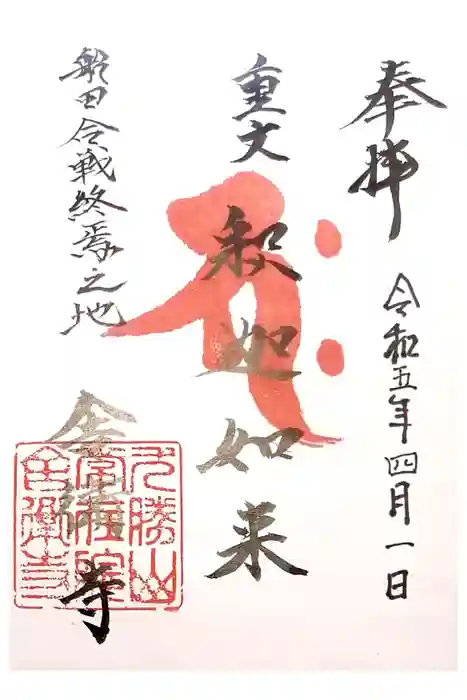 奉拝
令和五年四月一日
重文
釈迦如来
船田合戦終焉之地
舎衛寺
勝山
常在院
舎衛寺